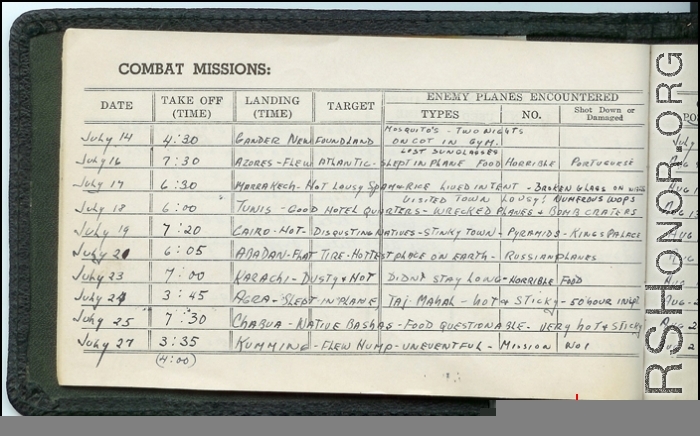 COMBAT MISSIONS:
ENEMY PLANES ENCOUNTERED
DATE TAKE OFF (TIME) LANDING (TIME) TARGET TYPES NO. Shot Down or Damaged
MOSQUITO'S - TWO NIGHTS
July 14 4:30 GANDER NEWFOUNDLAND ON COT IN GYM.
LOST SUNGLASSES
July 16 7:30 AZORES - FLEW ATLANTIC - SLEPT IN PLANE FOOD HORRIBLE PORTUGUESE
July 17 6:30 MARRAKECH - HOT LOUSY SPAM & RICE LIVED IN TENT - BROKEN GLASS ON
VISITED TOWN LOUSY! NUMEROUS WOPS
July 18 6:00 TUNIS - GOOD HOTEL QUARTERS - WRECKED PLANES & BOMB CRATERS
July 19 7:20 CAIRO - HOT - DISGUSTING NATIVES - STINKY TOWN - PYRAMIDS - KINGS PALACE
July 21 6:05 ABADAN - FLAT TIRE - HOTTEST PLACE ON EARTH - RUSSIAN PLANES
July 23 7:00 KARACHI - DUSTY & HOT DIDNT STAY LONG - HORRIBLE FOOD
July 24 3:45 AGRA - SLEPT IN PLANE, TAJ MAHAL - HOT & STICKY - 50 HOUR INSP
July 25 7:30 CHABUA - NATIVE BASHAS - FOOD QUESTIONABLE - VERY HOT & STICKY
July 27 3:35 KUMMING - FLEW HUMP - UNEVENTFUL - MISSION NO1
(4:00)
RSHONOR.ORG